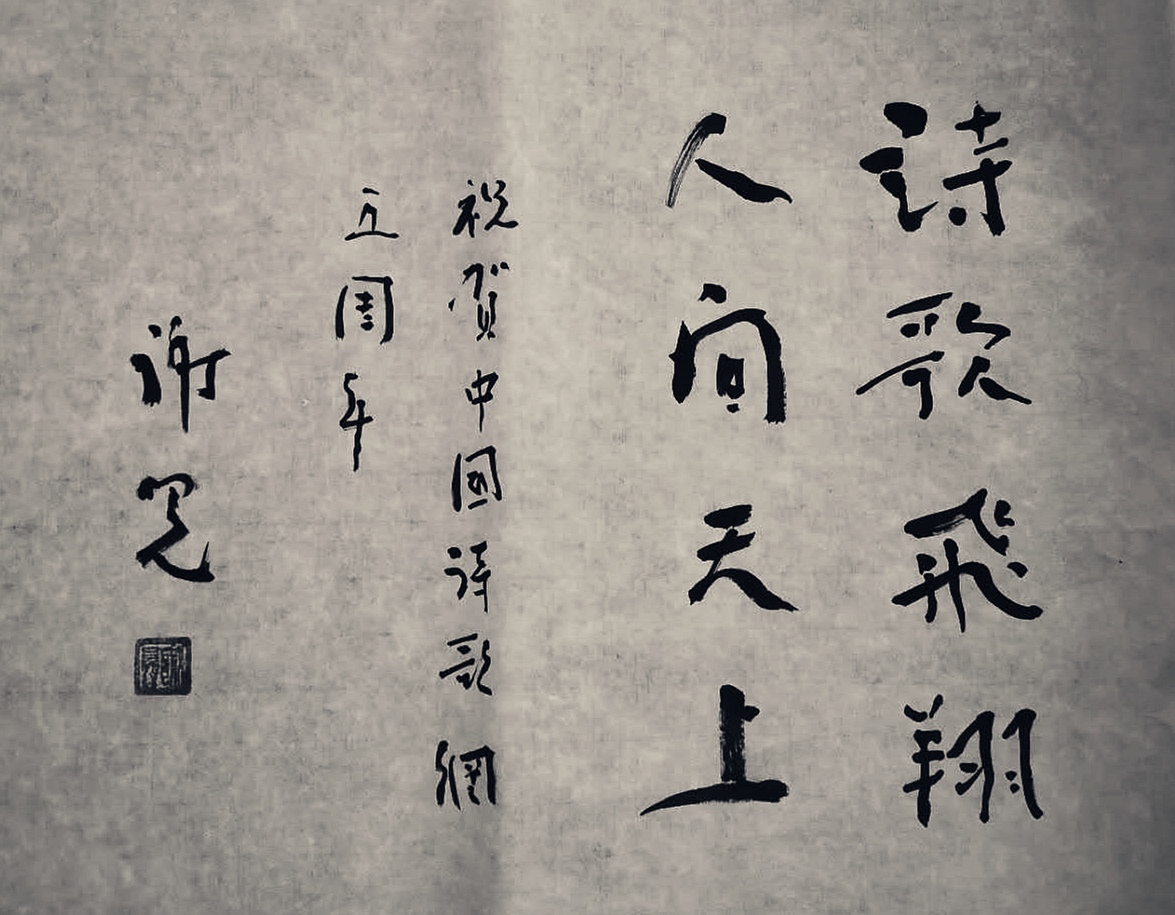 詩歌飛翔
人间天上
祝賀中國詩歌網
五周年
谢冕